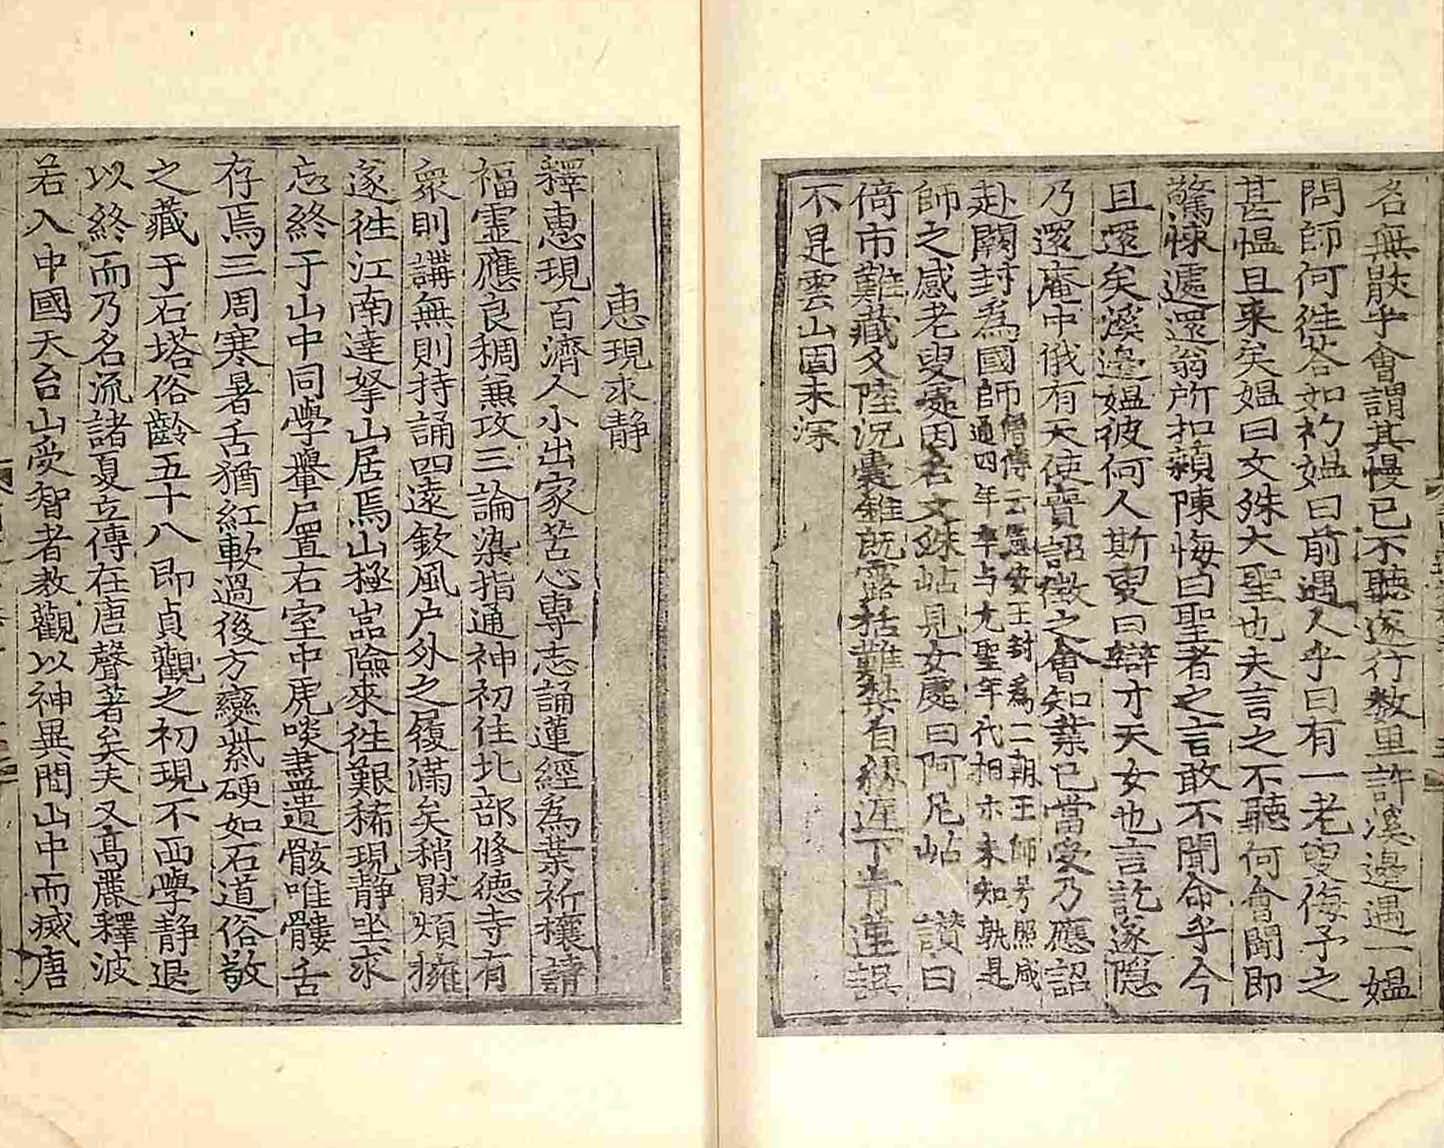 名無厭乎會謂其慢已不聽遂行數里許溪邊遇一媪
問師何徃荅如初媪曰前遇人乎曰有一老叟侮予之
甚愠且來矣媪曰文殊大聖也夫言之不聽何會聞即
驚悚遽還翁所扣顙陳悔曰聖者之言敢不聞命乎今
且還矣溪邊媪彼何人斯叟曰辯才天女也言訖遂隱
乃還庵中俄有天使賫詔徵之會知業已當受乃應詔
赴闕封爲國師
僧傳云憲安王封爲二朝王師号照咸
通四年卒与元聖年代相示未知孰是
師之感老叟處因名文殊岾見女處曰阿尼岾 讃曰
倚市難藏久陸沉囊錐既露括難禁自緣庭下青蓮誤
不是雲山固未深
惠現求静
釋惠現百濟人小出家苦心專志誦蓮經爲業祈禳請
福靈應良稠兼攻三論染指通神初住北部修德寺有
衆則講無則持誦四遠欽風戶外之履滿矣稍厭煩擁
遂徃江南達拏山居焉山極嵓險來徃艱稀現静坐求
忘終于山中同學轝尸置石室中虎啖盡遺骸唯髏舌
存焉三周寒暑舌猶紅軟過後方變紫硬如石道俗敬
之藏于石塔俗齡五十八即貞觀之初現不西學静退
以終而乃名流諸夏立傳在唐聲著矣夫又高麗釋波
若入中國天台山受智者教觀以神異間山中而滅唐